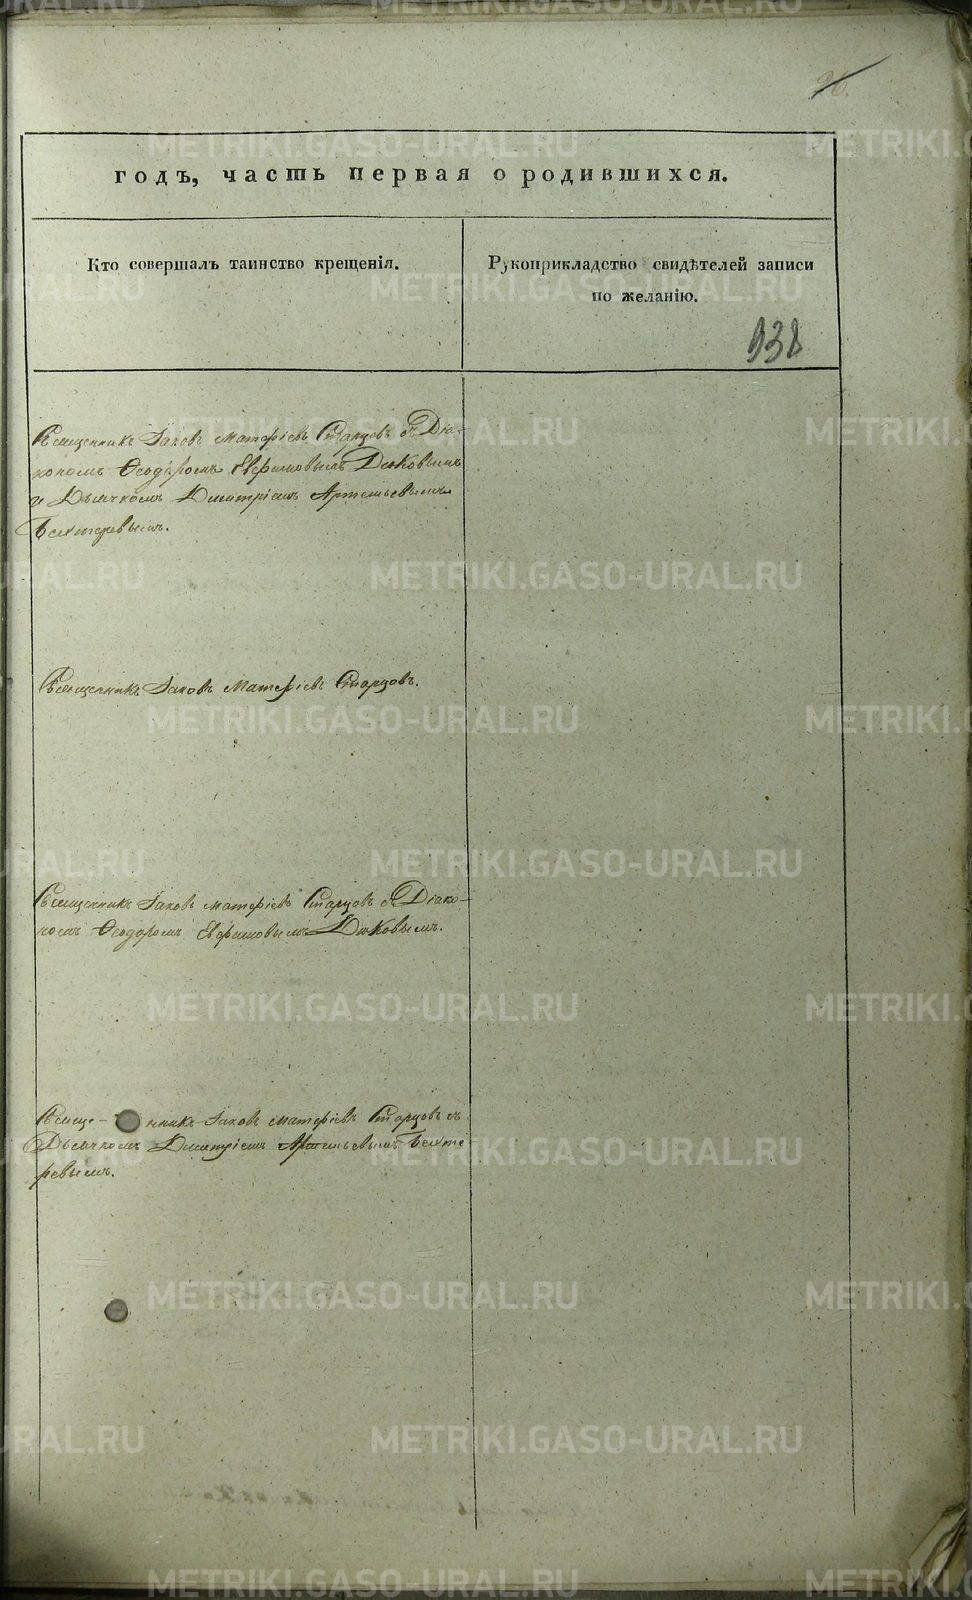 26.
годъ, часть первая о родившихся.
Кто совершалъ таинство крещенія.
Рукоприкладство свидѣтелей записи
по желанію.
938
Священникъ Іаковъ Матѳіевъ Старцовъ съ Діа-
кономъ Ѳеодоромъ Евѳимовымъ Дюковымъ
и Дьячкомъ Димитріемъ Артемьевымъ
Бехтеревымъ.
Священникъ Іаковъ Матѳіевъ Старцовъ.
Священникъ Іаковъ Матѳіевъ Старцовъ съ Діако-
номъ Ѳеодоромъ Евѳимовымъ Дюковымъ.
Свяще- нникъ Іаковъ Матѳіевъ Старцовъ съ
Дьячкомъ Димитріемъ Артемьевымъ Бехте-
ревымъ.
METRIKI.GASO-URAL.RU